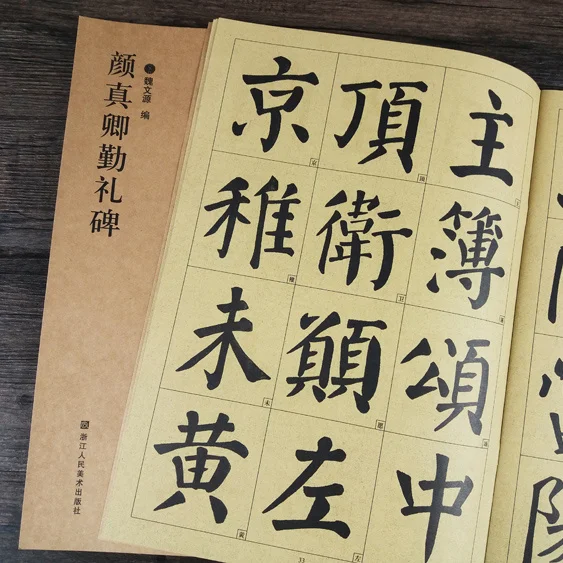 颜真卿勤礼碑
魏文源 编
浙江人民美术出版社
京頂主
稚衛簿
未願頌
黄左中